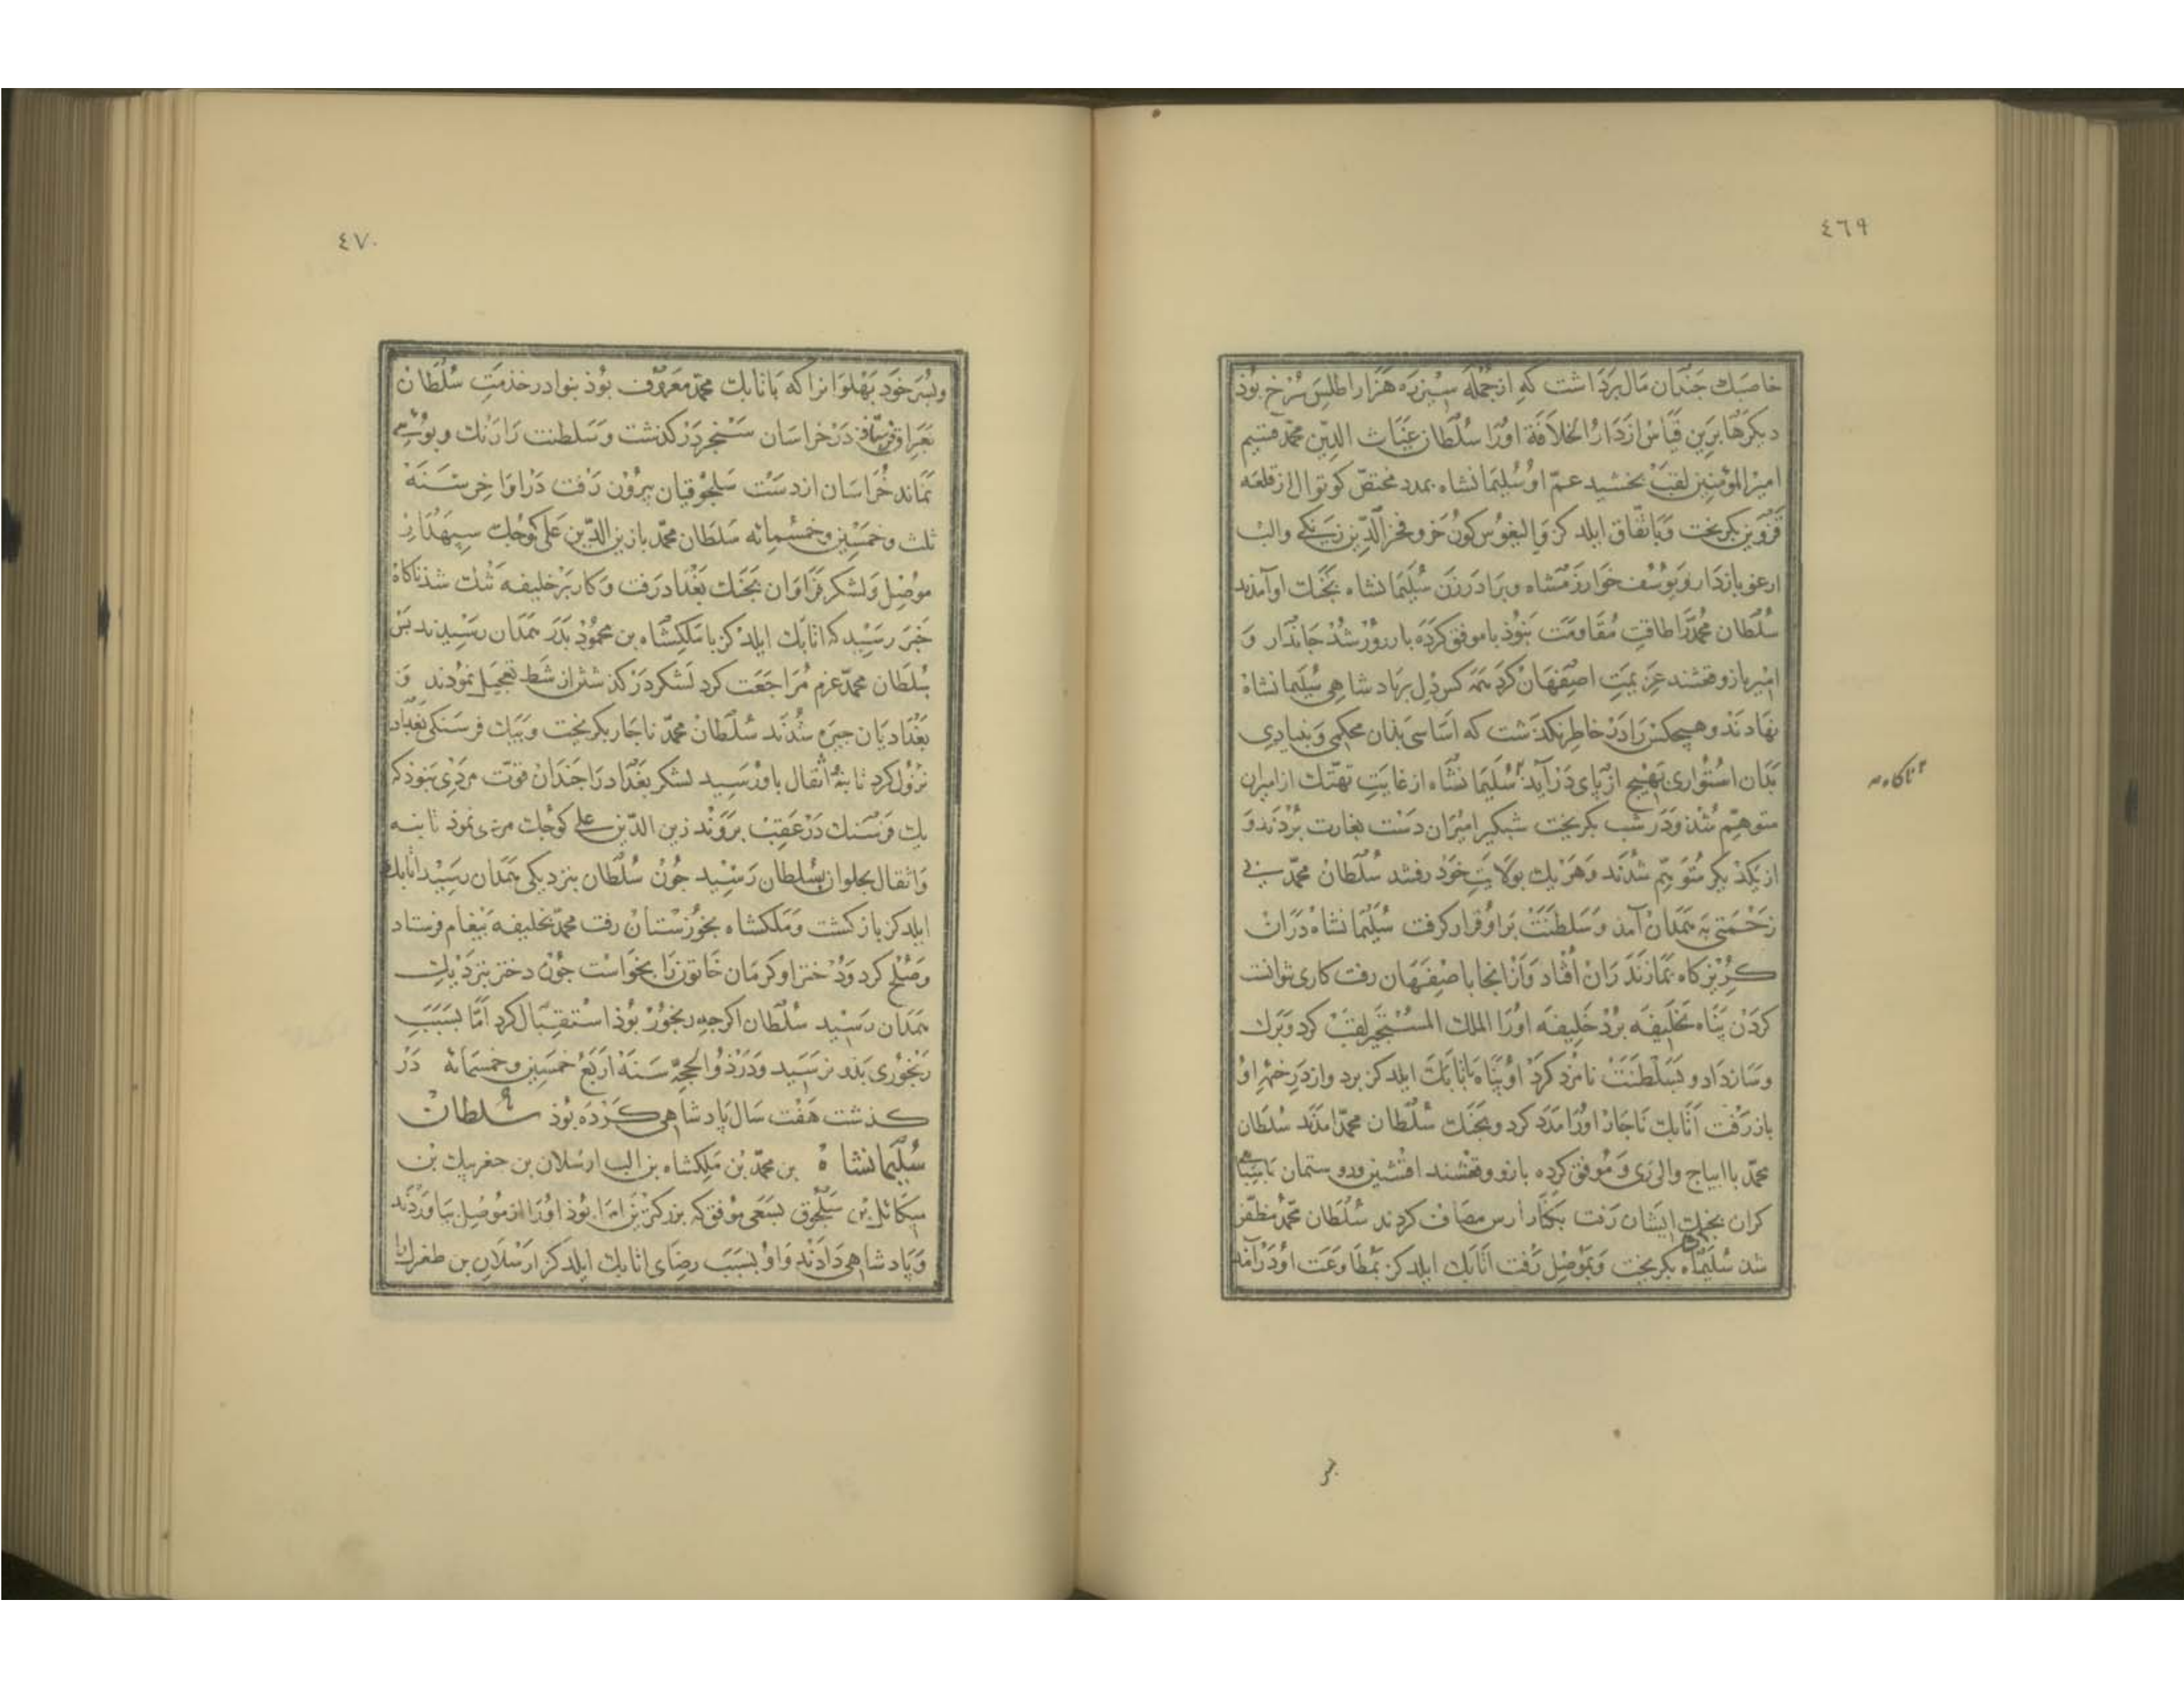 ٤٦٩
خاصبك جندان مال برداشت كه از جمله سيزده هزار اطلس سرخ بوذ
ديكرها برين قياس از دار الخلافة اورا سلطان غياث الدين محمد قسيم
امير المؤمنين لقب بخشيد عم او سليمانشاه بمدد مختص كوتوال از قلعه
قزوين بكريخت وباتفاق ايلدكز والبغوس كون خر وفخر الدين زنكى والب
ارغو بازدار ويوسف خوارزمشاه وبرادر زن سليمانشاه بجنك او آمدند
سلطان محمد را طاقت مقاومت نبوذ با موفق كرده بازو رشد جاندار و
امير بازو قفشند عزيمت اصفهان كرد همه كس دل بر باد شاهى سليمانشاه
نهادند وهيچكس را در خاطر نكذشت كه اساسى بذان محكمى وبنيادى
بدان استوارى بهيچ از پاى در آيد سليمانشاه از غايت تهتك از اميران
ناكاه
متوهم شذ ودر شب بكريخت شبكير اميران دست بغارت بردند و
از يكديكر متوهم شدند وهر يك بولايت خود رفتند سلطان محمد بى
زحمتى به همدان آمذ وسلطنت براو قرار كرفت سليمانشاه دران
كريزكاه بمازندران افتاد وازانجا باصفهان رفت كارى نتوانست
كردن پناه بخليفه برد خليفه اورا الملك المستجير لقب كرد وبرك
وساز داد وبسلطنت نامزد كرد او پناه باتابك ايلدكز برد واز در خهر او
باز رفت اتابك ناچار اورا مدد كرد وبجنك سلطان محمد آمدند سلطان
محمد با اينانج والى رى وموفق كرده بازو وقفشند آقسنقر ودو ستمان با سپاهى
كران بجنك ايشان رفت بكنار ارس مصاف كردند سلطان محمد مظفر
شذ سليمانشاه بكريخت وبموصل رفت اتابك ايلدكز بمطاوعت او در آمد
٤٧٠
وپسر خود پهلوانرا كه باتابك محمد معروف بوذ بنوا در خدمت سلطان
بعراق فرستاذ در خراسان سنجر در كذشت وسلطنت را رنك وبويى
نماند خراسان از دست سلجوقيان بيرون رفت در اواخر سنه
ثلث وخمسين وخمسمائه سلطان محمد با زين الدين على كوچك سپهدار
موصل ولشكر فراوان بجنك بغداد رفت وكار بر خليفه تنك شذ ناكاه
خبر رسيد كه اتابك ايلدكز با ملكشاه بن محمود بدر همدان رسيدند پس
سلطان محمد عزم مراجعت كرد لشكر در كذشتن از شط تعجيل نمودند و
بغداديان چيره شدند سلطان محمد ناچار بكريخت وبيك فرسنكى بغداد
نزول كرد تا بنه اثقال باو رسيد لشكر بغداد را چندان قوت مردى نبوذ كه
يك فرسنك در عقب بروند زين الدين على كوچك مردى نموذ تا بنه
واثقال بحلوان بسلطان رسيد چون سلطان بنزديكى همدان رسيد اتابك
ايلدكز باز كشت وملكشاه بخوزستان رفت محمد بخليفه پيغام فرستاد
وصلح كرد ودختر او كرمان خاتون را بخواست چون دختر بنزديك
همدان رسيد سلطان اكرچه رنجور بوذ استقبال كرد اما بسبب
رنجورى بدو نرسيد ودر ذو الحجه سنه اربع خمسين وخمسمائه در
كذشت هفت سال پادشاهى كرده بوذ سلطان
سليمانشاه بن محمد بن ملكشاه بن الب ارسلان بن جغربيك بن
ميكائل بن سلجوق بسعى موفق كه بزركترين امرا بوذ اورا از موصل بياوردند
وپادشاهى دادند واو بسبب رضاى اتابك ايلدكز ارسلان بن طغرل را